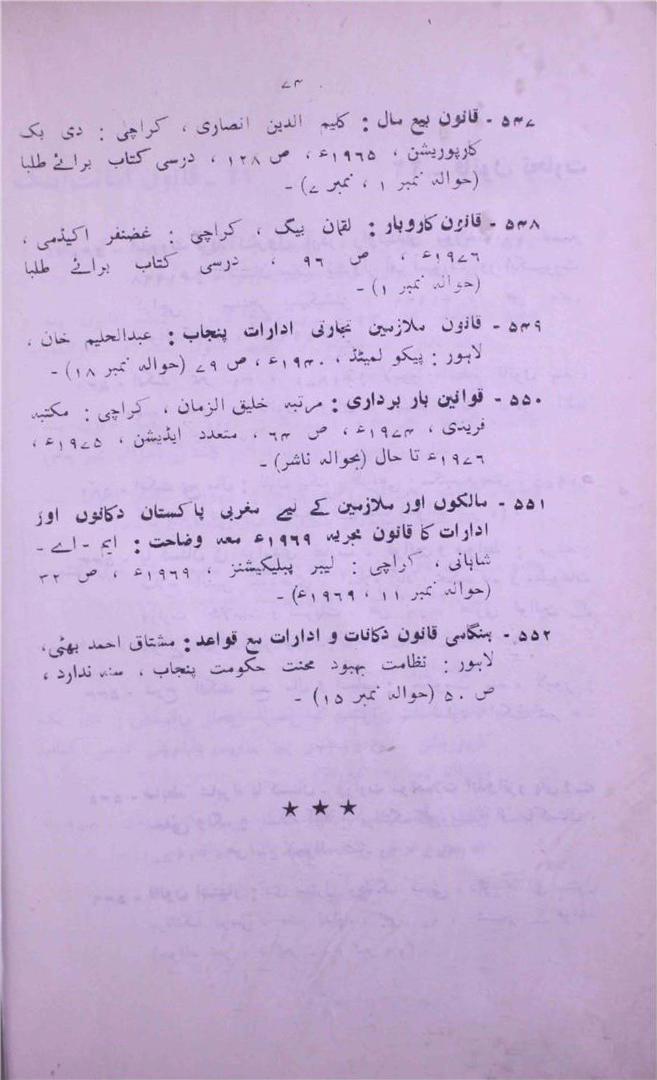 ۷۴
۵۴۷ - قانون بیع مال : کلیم الدین انصاری ، کراچی : دی بک
کارپوریشن ، ۱۹۶۵ء ، ص ۱۲۸ ، درسی کتاب برائے طلبا
(حوالہ نمبر ۱ ، نمبر ۷) -
۵۴۸ - قانون کاروبار : لقان بیگ ، کراچی : غضنفر اکیڈمی ،
۱۹۷۶ء ، ص ۹۶ ، درسی کتاب برائے طلبا
(حوالہ نمبر ۱) -
۵۴۹ - قانون ملازمین تجارتی ادارات پنجاب : عبدالحلیم خان ،
لاہور : پیکو لمیٹڈ ، ۱۹۴۰ء ، ص ۷۹ (حوالہ نمبر ۱۸) -
۵۵۰ - قوانین بار برداری : مرتبہ خلیق الزمان ، کراچی : مکتبہ
فریدی ، ۱۹۷۴ء ، ص ۶۴ ، متعدد ایڈیشن ، ۱۹۷۵ء ،
۱۹۷۶ء تا حال (بحوالہ ناشر) -
۵۵۱ - مالکوں اور ملازمین کے لیے مغربی پاکستان دکانوں اور
ادارات کا قانون مجریہ ۱۹۶۹ء معہ وضاحت : ایم - اے -
شاہانی ، کراچی : لیبر پبلیکیشنز ، ۱۹۶۹ء ، ص ۳۲
(حوالہ نمبر ۱۱ ، ۱۹۶۹ء) -
۵۵۲ - ہنگامی قانون دکانات و ادارات مع قواعد : مشتاق احمد بھٹی ،
لاہور : نظامت بہبود محنت حکومت پنجاب ، سنہ ندارد ،
ص ۵۰ (حوالہ نمبر ۱۵) -
★ ★ ★